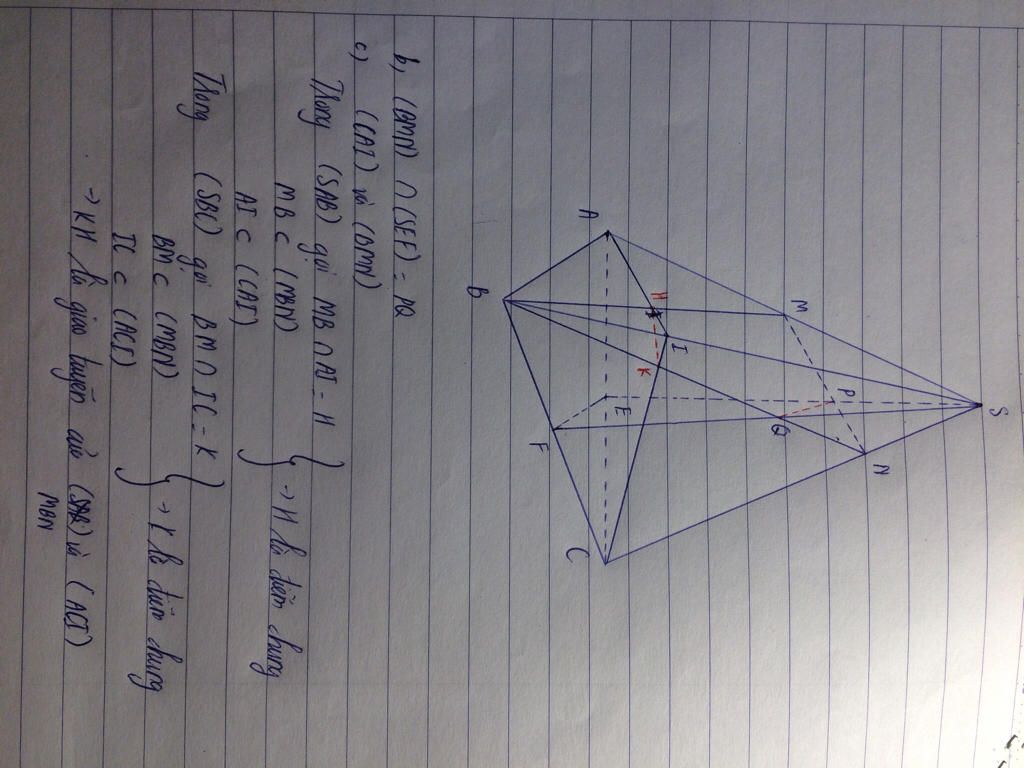 S
M
N
P
Q
I
H
K
A
E
F
C
B
b, (BMN) ∩ (SEF) = PQ
c, (CAI) và (BMN)
Trong (SAB) gọi MB ∩ AI = H
MB ⊂ (MBN)
AI ⊂ (CAI)
} → H là điểm chung
Trong (SBC) gọi BN ∩ IC = K
BN ⊂ (MBN)
IC ⊂ (ACI)
} → K là điểm chung
→ KH là giao tuyến của và (ACI)
MBN